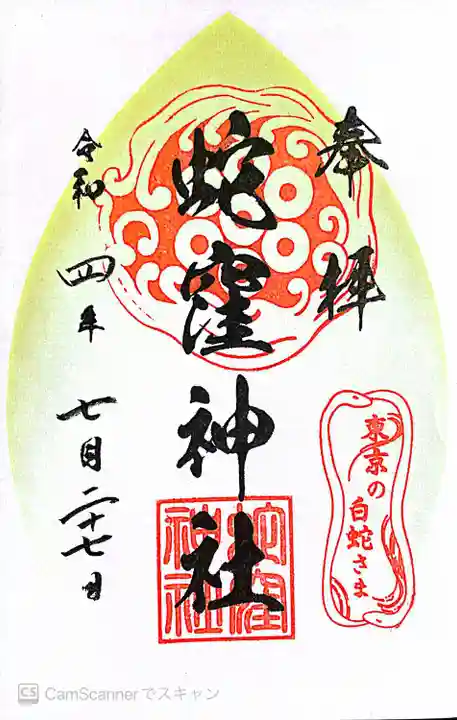 奉拝
蛇窪神社
令和四年七月二十七日
東京の
白蛇さま
蛇窪
神社
CS CamScannerでスキャン